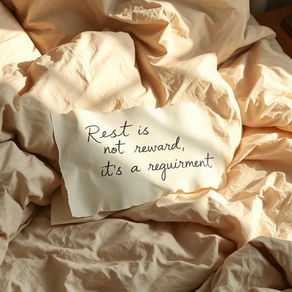 Rest is
not reward,
it's a reguirment